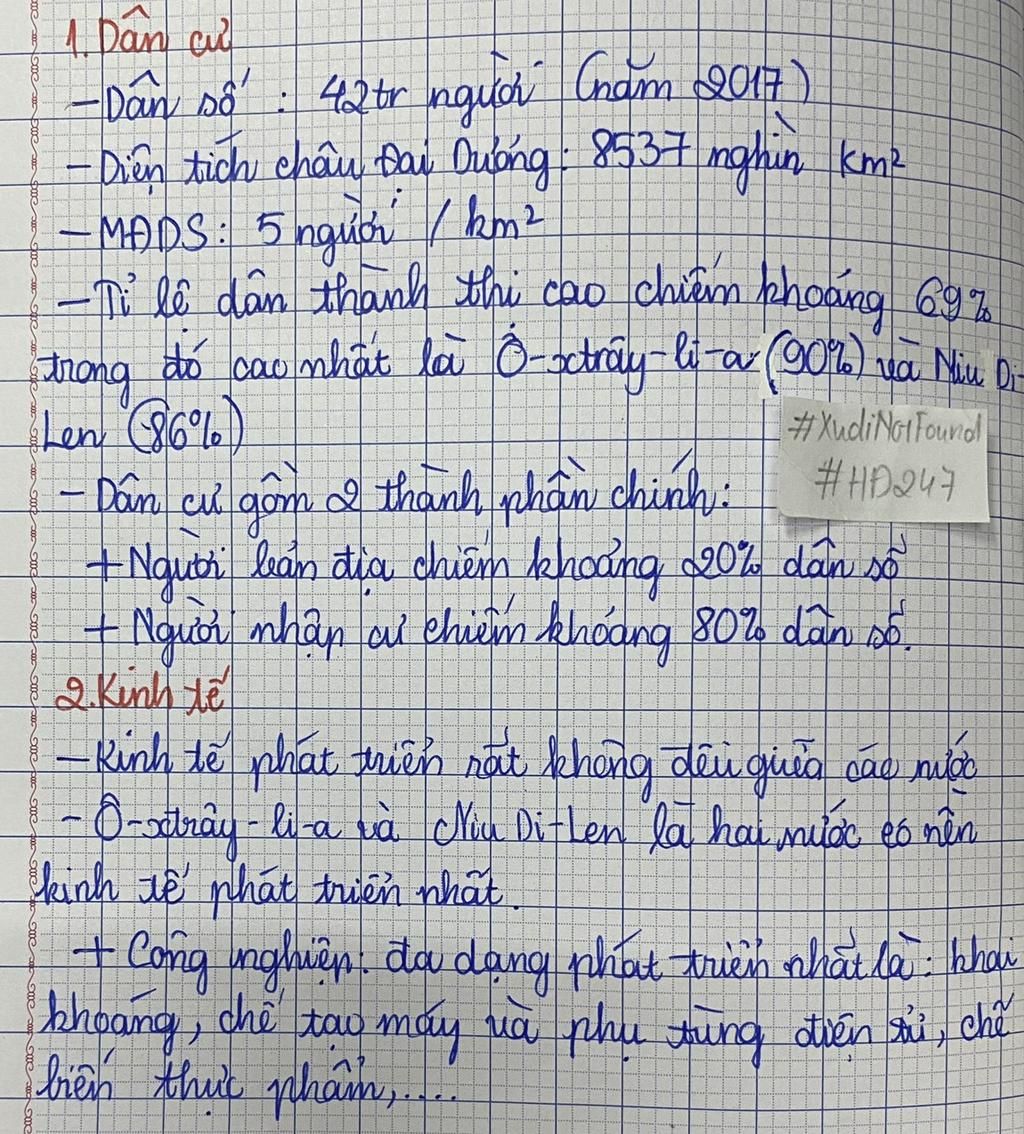 1. Dân cư
- Dân số : 42tr người (năm 2017)
- Diện tích châu Đại Dương: 8537 nghìn km²
- MĐDS: 5 người / km²
- Tỉ lệ dân thành thị cao chiếm khoảng 69%
trong đó cao nhất là Ô-xtrây-li-a (90%) và Niu Di-
Len (86%)
#XudiNotFound
#HĐ247
- Dân cư gồm 2 thành phần chính:
+ Người bản địa chiếm khoảng 20% dân số
+ Người nhập cư chiếm khoảng 80% dân số.
2. Kinh tế
- Kinh tế phát triển rất không đều giữa các nước
- Ô-xtrây-li-a và Niu Di-Len là hai nước có nền
kinh tế phát triển nhất.
+ Công nghiệp: đa dạng phát triển nhất là: khai
khoáng, chế tạo máy và phụ tùng điện tử, chế
biến thực phẩm,....